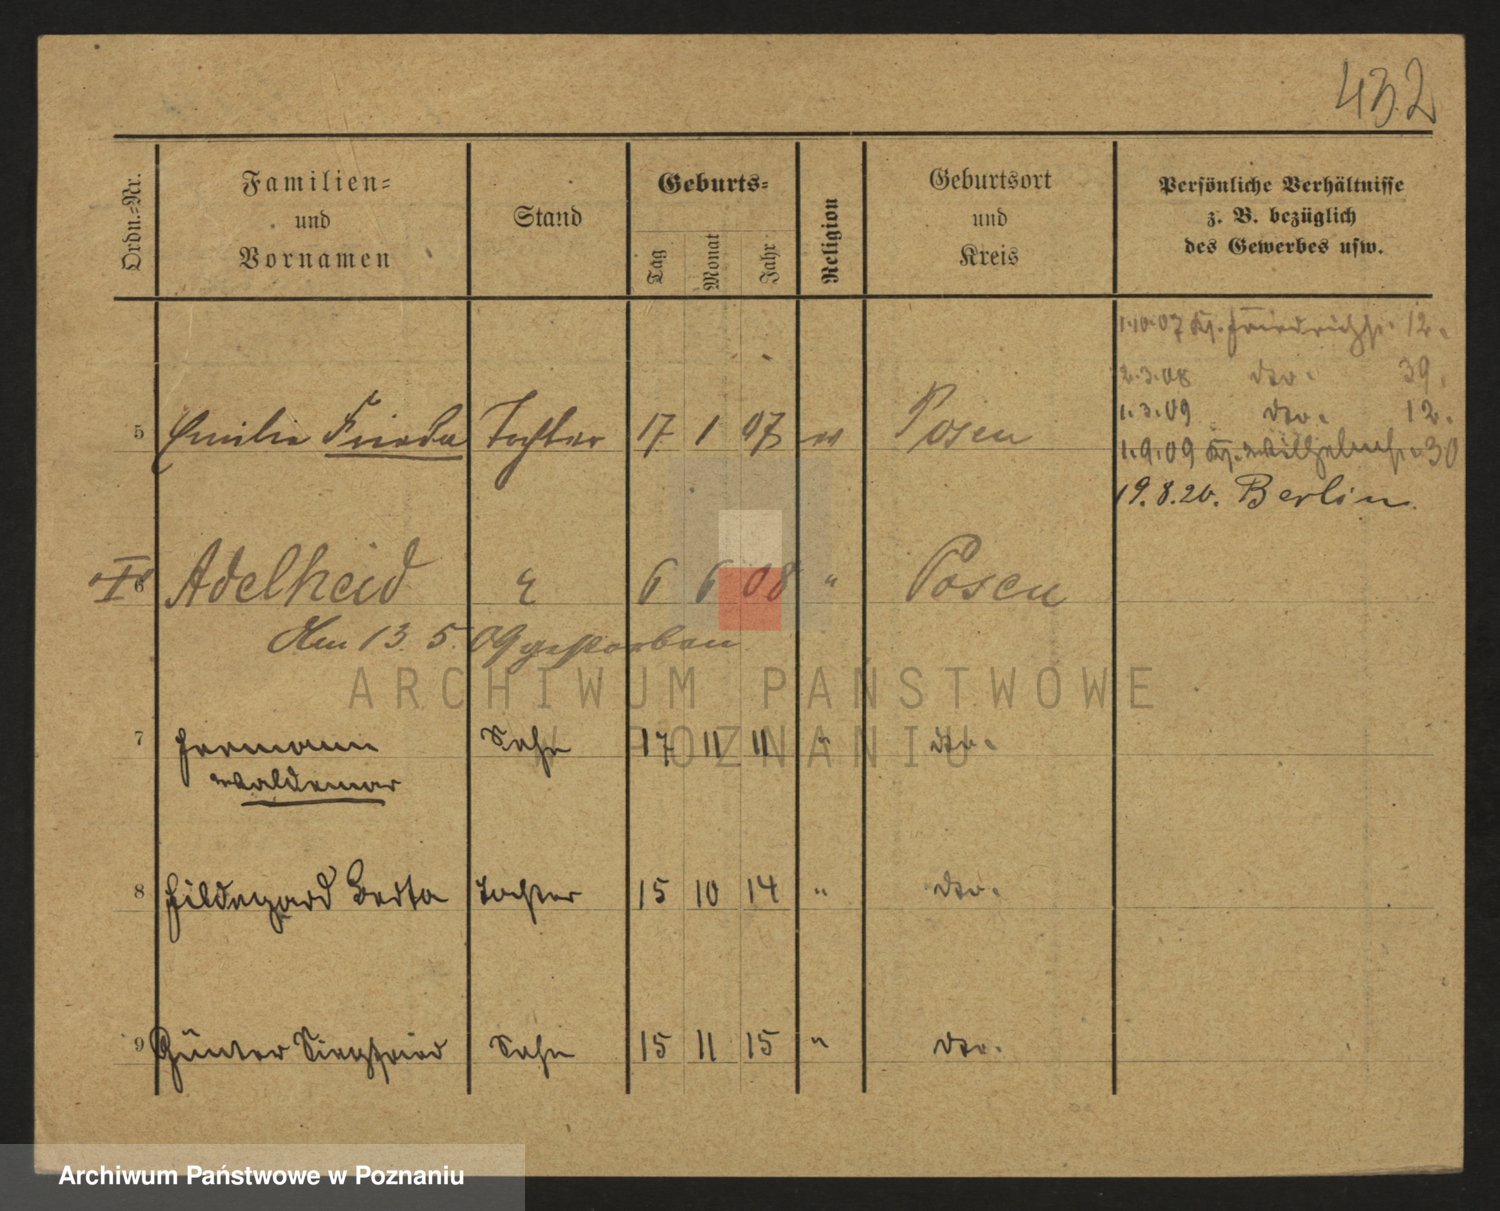 432
Ordn.=Nr.
Familien=
und
Vornamen
Stand
Geburts=
Tag
Monat
Jahr
Religion
Geburtsort
und
Kreis
Persönliche Verhältnisse
z. B. bezüglich
des Gewerbes usw.
1.10.07 Friedrichstr. 12.
2.3.08 dto. 39.
1.3.09 dto. 12.
5 Emilie Frieda Tochter 17 1 07 Posen
1.9.09 Wilhelmstr. 30
19.8.20. Berlin
6 Adelheid " 6 6 08 " Posen
Am 13. 5. 09 gestorben
7 Hermann Sohn 17 11 11 " dto.
Waldemar
8 Hildegard Berta Tochter 15 10 14 " dto.
9 Günter Siegfried Sohn 15 11 15 " dto.
ARCHIWUM PAŃSTWOWE
W POZNANIU
Archiwum Państwowe w Poznaniu